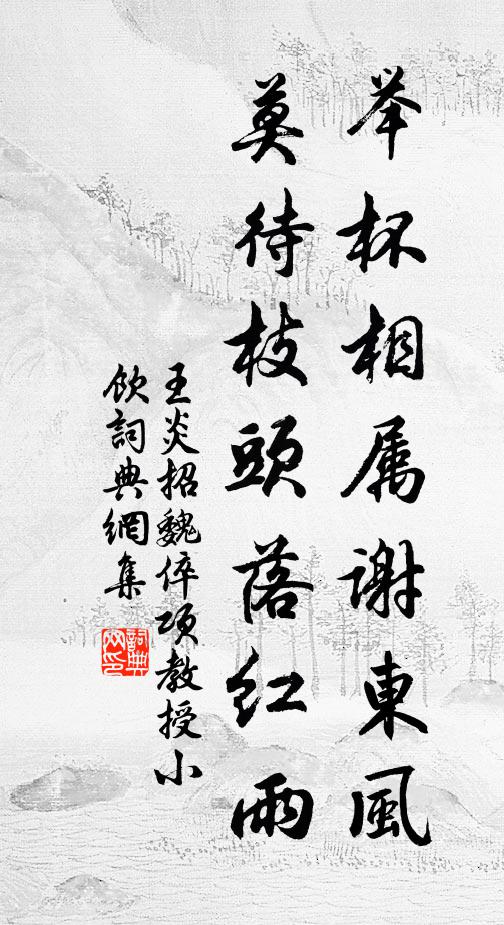 举杯相属谢東風
莫待枝頭落红雨
王炎招魏倅项教授小
飲詞典網集
詞典
网印